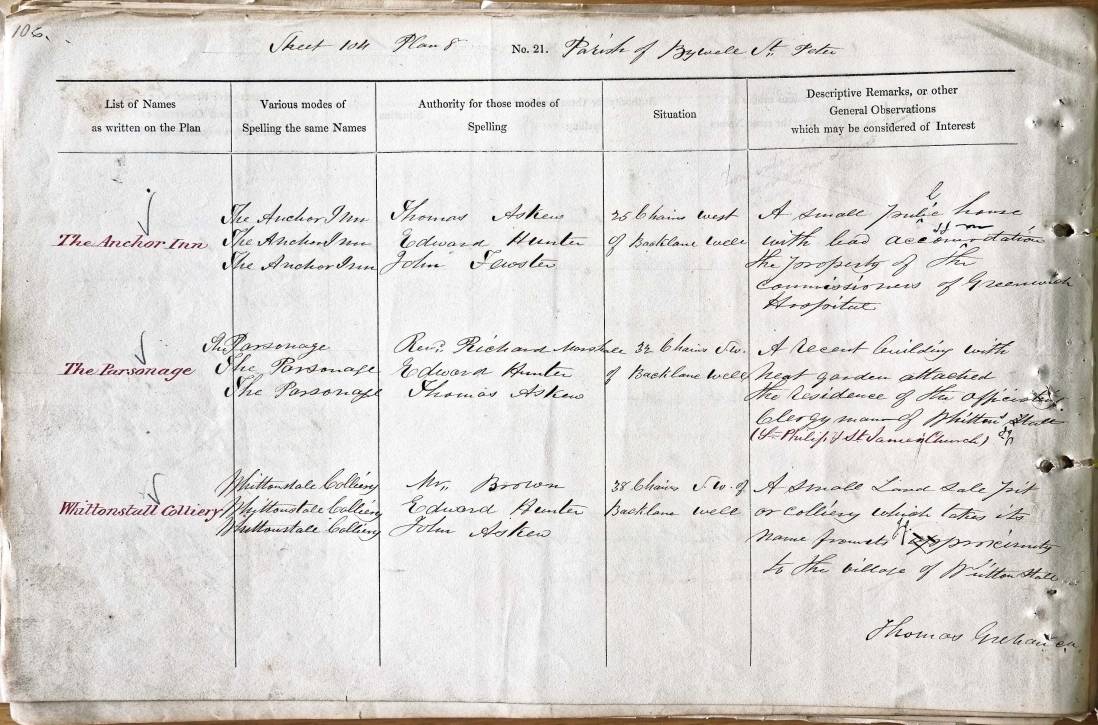 106.
Sheet 104 Plan 8 No. 21. Parish of Bywell St. Peter
List of Names
as written on the Plan
Various modes of
Spelling the same Names
Authority for those modes of
Spelling
Situation
Descriptive Remarks, or other
General Observations
which may be considered of Interest
The Anchor Inn
The Anchor Inn
The Anchor Inn
The Anchor Inn
Thomas Askew
Edward Hunter
John Fewster
35 Chains West
of Backlane Well
A small public house
with lead accommodation
the property of the
Commissioners of Greenwich
Hospital
The Parsonage
The Parsonage
The Parsonage
The Parsonage
Revd. Richard Marshale
Edward Hunter
Thomas Askew
32 Chains S.W.
of Backlane Well
A recent building with
neat garden attached
the residence of the officiating
Clergyman of Whitton Stall
(St. Philip & St James Church)
Whittonstall Colliery
Whittonstale Colliery
Whittonstale Colliery
Whittonstale Colliery
Mr. Brown
Edward Hunter
John Askew
38 Chains S.W. of
Backlane Well
A small Land sale pit
or colliery which takes its
name from its approximity
to the village of Whitton Stall
Thomas